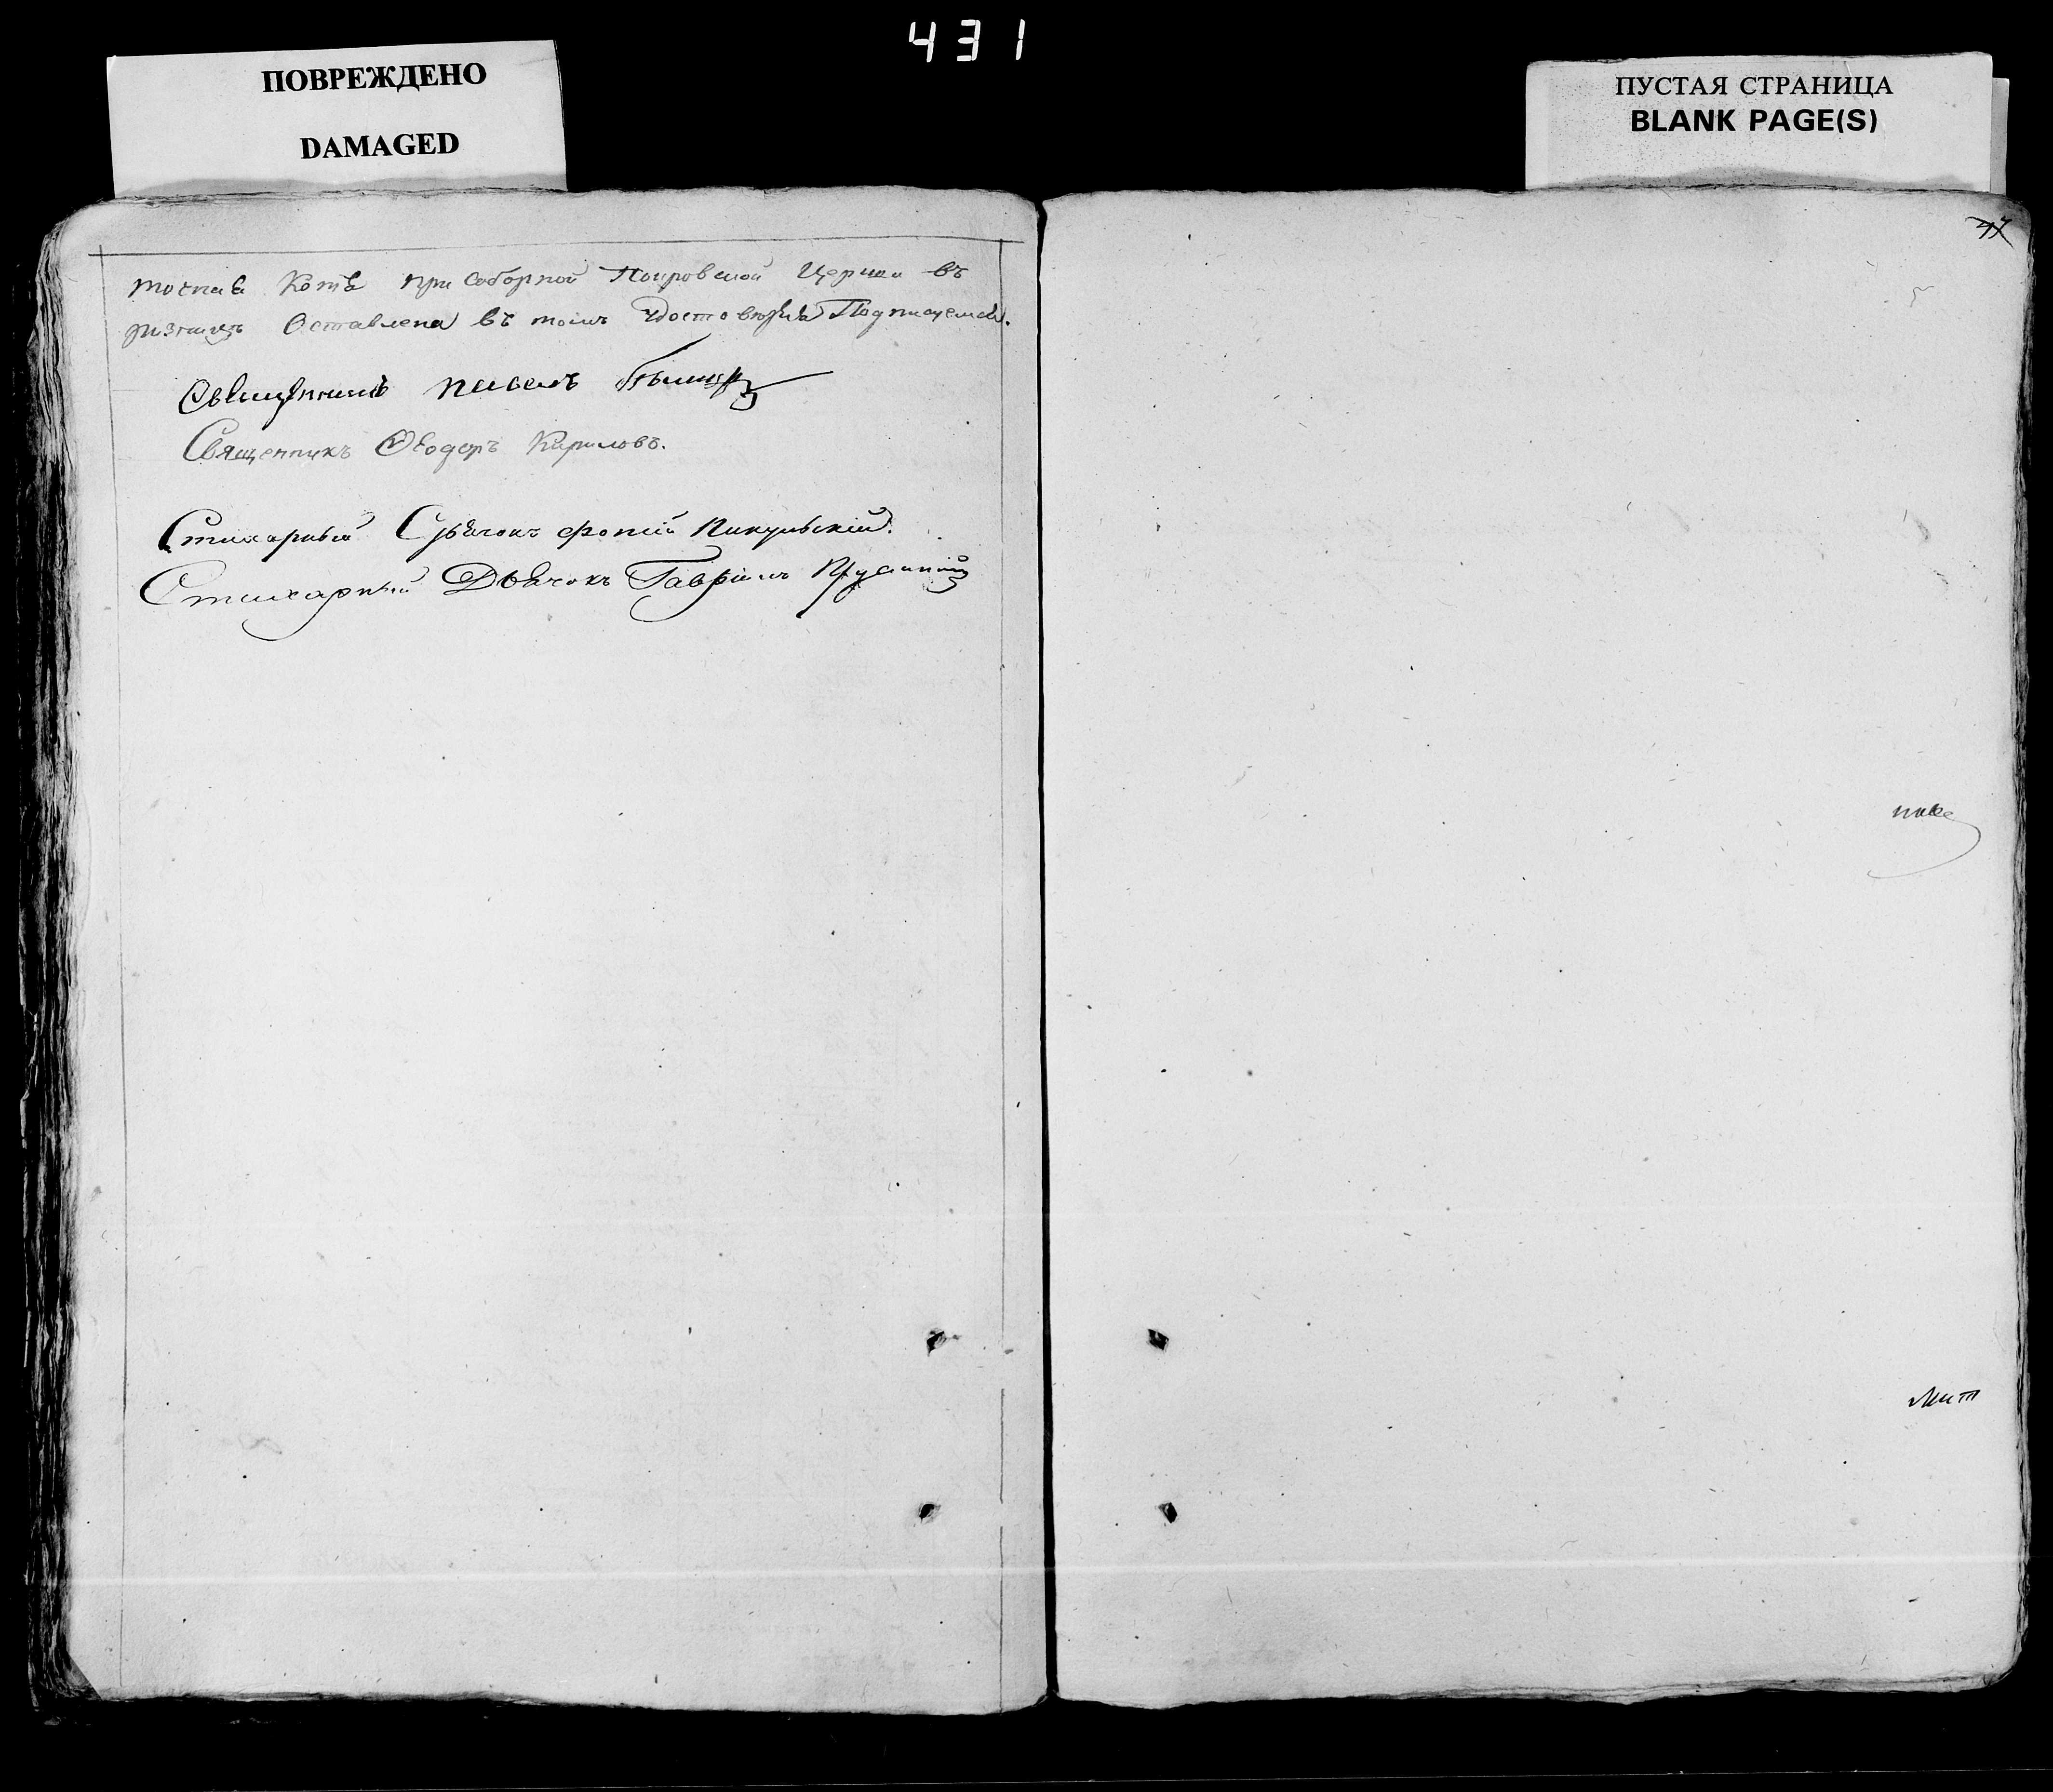 431
ПОВРЕЖДЕНО
DAMAGED
ПУСТАЯ СТРАНИЦА
BLANK PAGE(S)
точная Копѣя при Соборной Покровской Церкви въ
ризницѣ Оставлена въ томъ Удостовѣряя Подписуемся.
Священникъ Павелъ
Священникъ Ѳеодоръ Кириловъ.
Стихарный Дьячокъ Фотій Пикульскій.
Стихарный Дьячокъ Гавріилъ